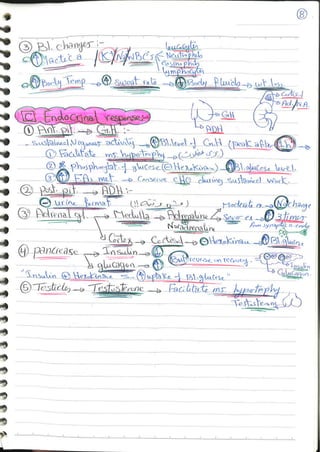 8
③ Bl. changes :-
Leucocytes
Neutrophils
Eosinophils
lymphocytes
↑ lactic a / K / N / WBCs
↑ Body Temp → ↑ sweat rate → ↓ Body fluids → wt loss
Cortisol
Ad / NA
C Endocrinal responses:-
GH
ADH
① Ant. pit. → GH :-
- sustained Vigorous activity → ↑ Bl. level of GH (peak after 1 h
① Facilitate ms hypertrophy
② phosphorylat. of glucose (⊖ Hexokinase) ↑ Bl. glucose level
③ ↑ FAs met → Conserve CHO during sustained work.
② Post. pit. → ADH :-
⊖ urine format Moderate ex → No change
③ Adrenal gl. → Medulla → Adrenaline Severe ex → ↑ 3 times
Noradrenaline from sympath. n. ends
Cortex → Cortisol → ⊖ Hexokinase → ↑ Bl. glucose
④ pancrease → Insulin → ↓
glucagon → ↑ reverse in recovery
Insulin
Glucagon
"Insulin ⊕ Hexokinase → ↑ uptake of Bl. glucose"
⑤ Testicles → Testosterone → Facilitate ms hypertrophy
Testosterone